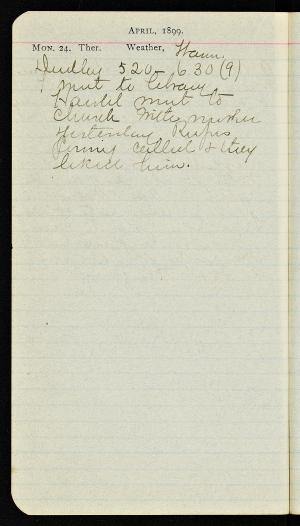 April, 1899.
Mon. 24. Ther. Weather, Warm.
Dudley 520 - 630 (9)
went to library
went to
Church with mother
yesterday Rufus
called & they
liked him.